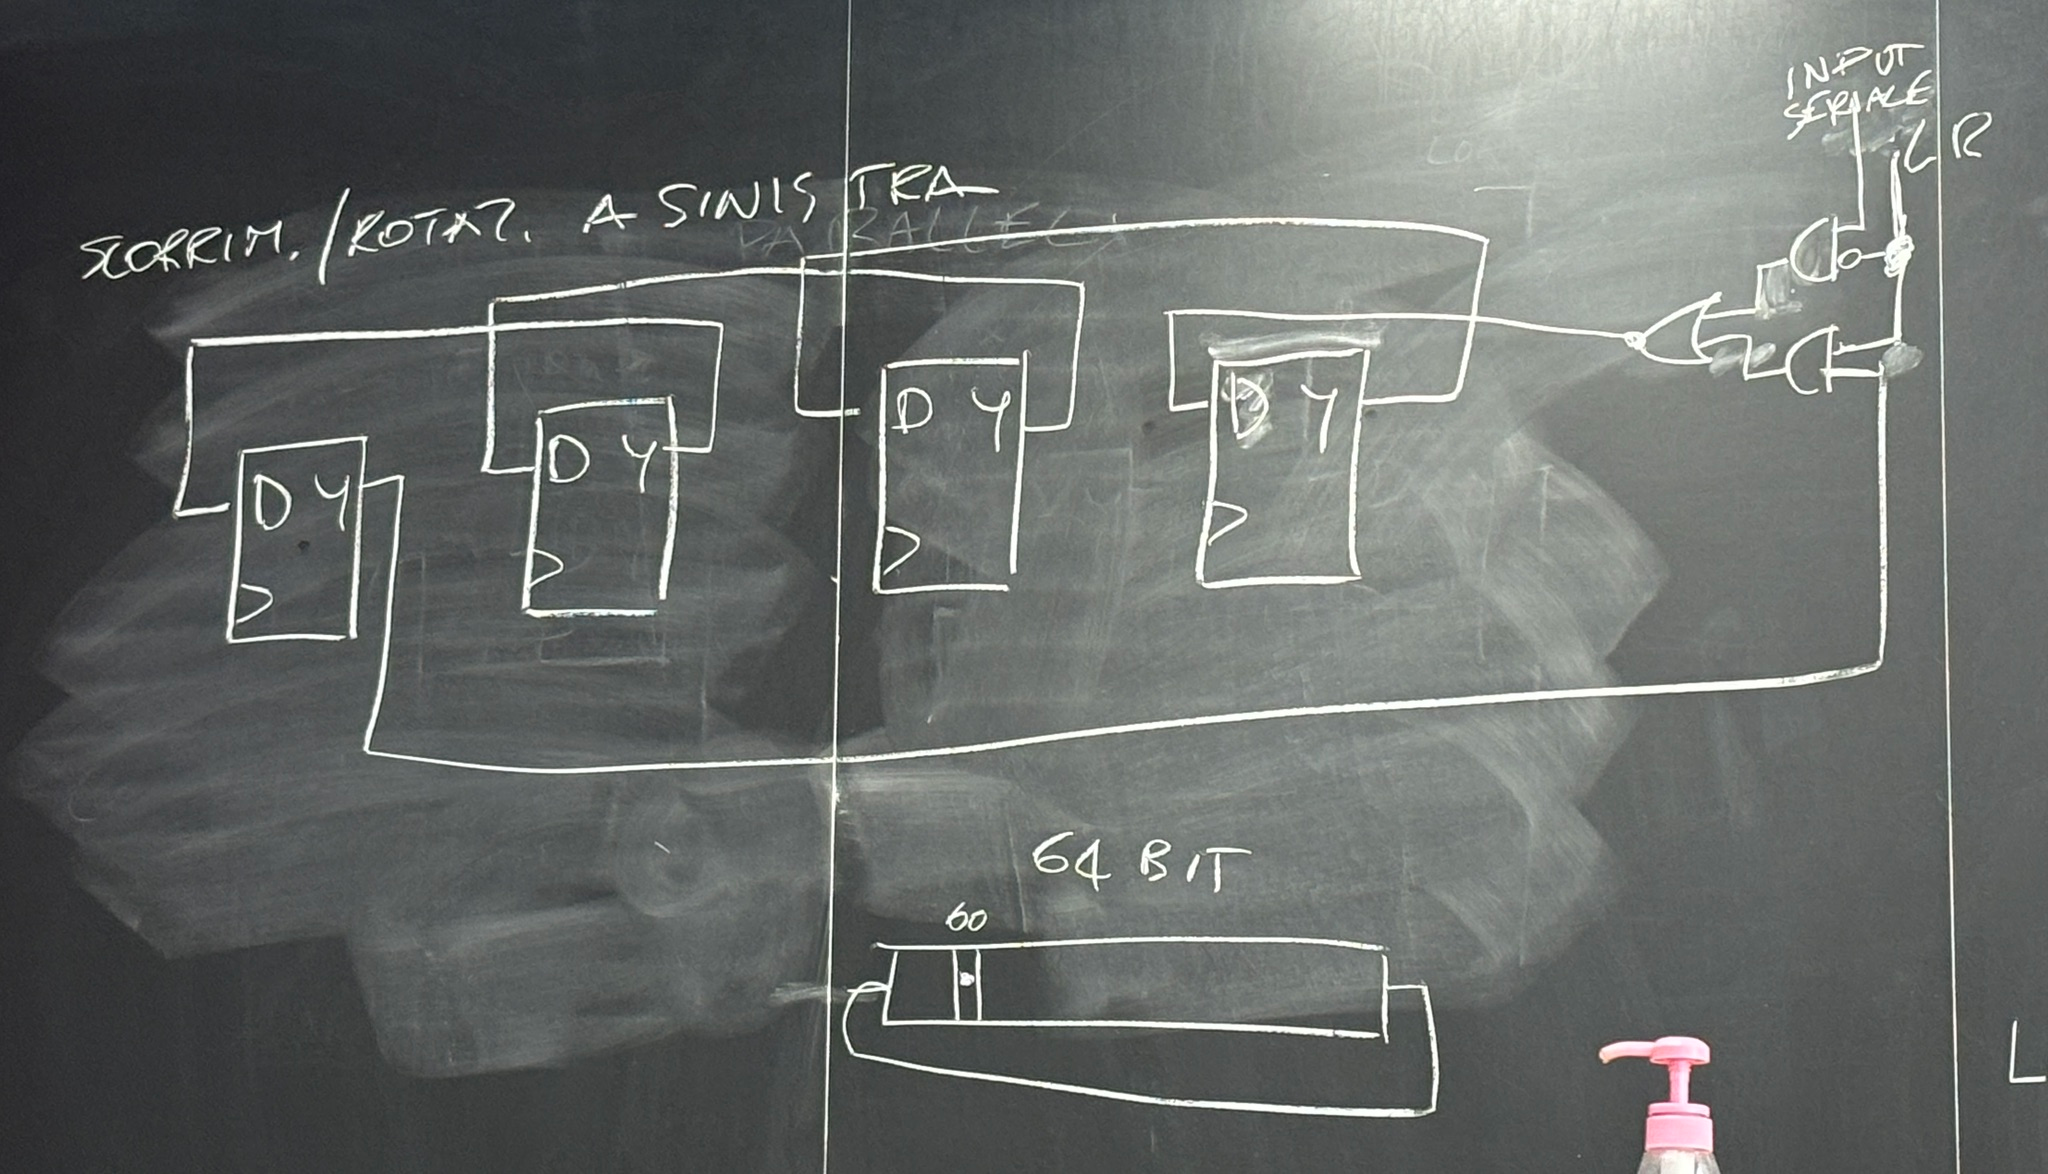 INPUT
SERIALE
LR
SCORRIM./ROTAZ. A SINISTRA
PARALLELA
D Y
D Y
D Y
D Y
64 BIT
60
L